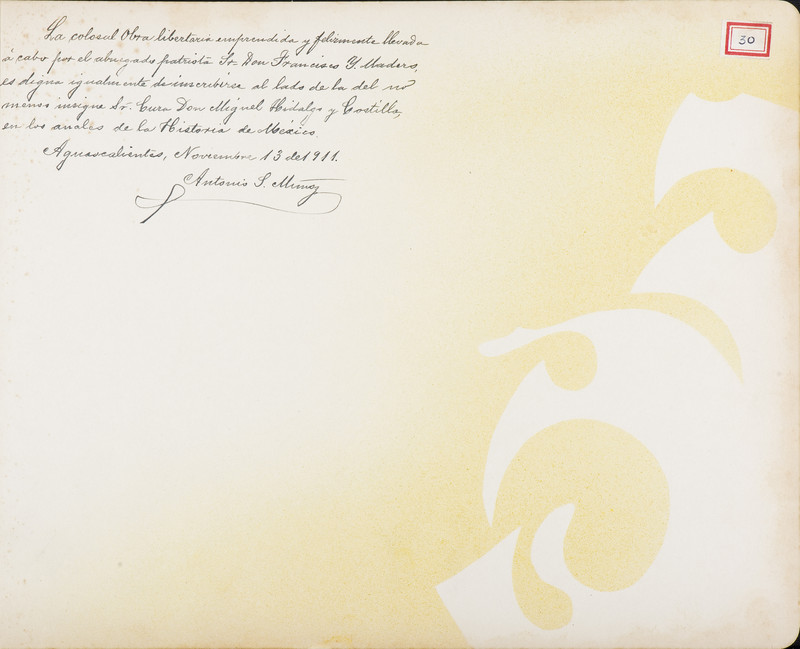 30
La colosal Obra libertaria emprendida y felizmente llevada
á cabo por el abnegado patriota Sr. Don Francisco Y. Madero,
es digna igualmente de inscribirse al lado de la del no
menos insigne Sr. Cura Don Miguel Hidalgo y Costilla,
en los anales de la Historia de México.
Aguascalientes, Noviembre 13 de 1911.
Antonio S. Muñoz